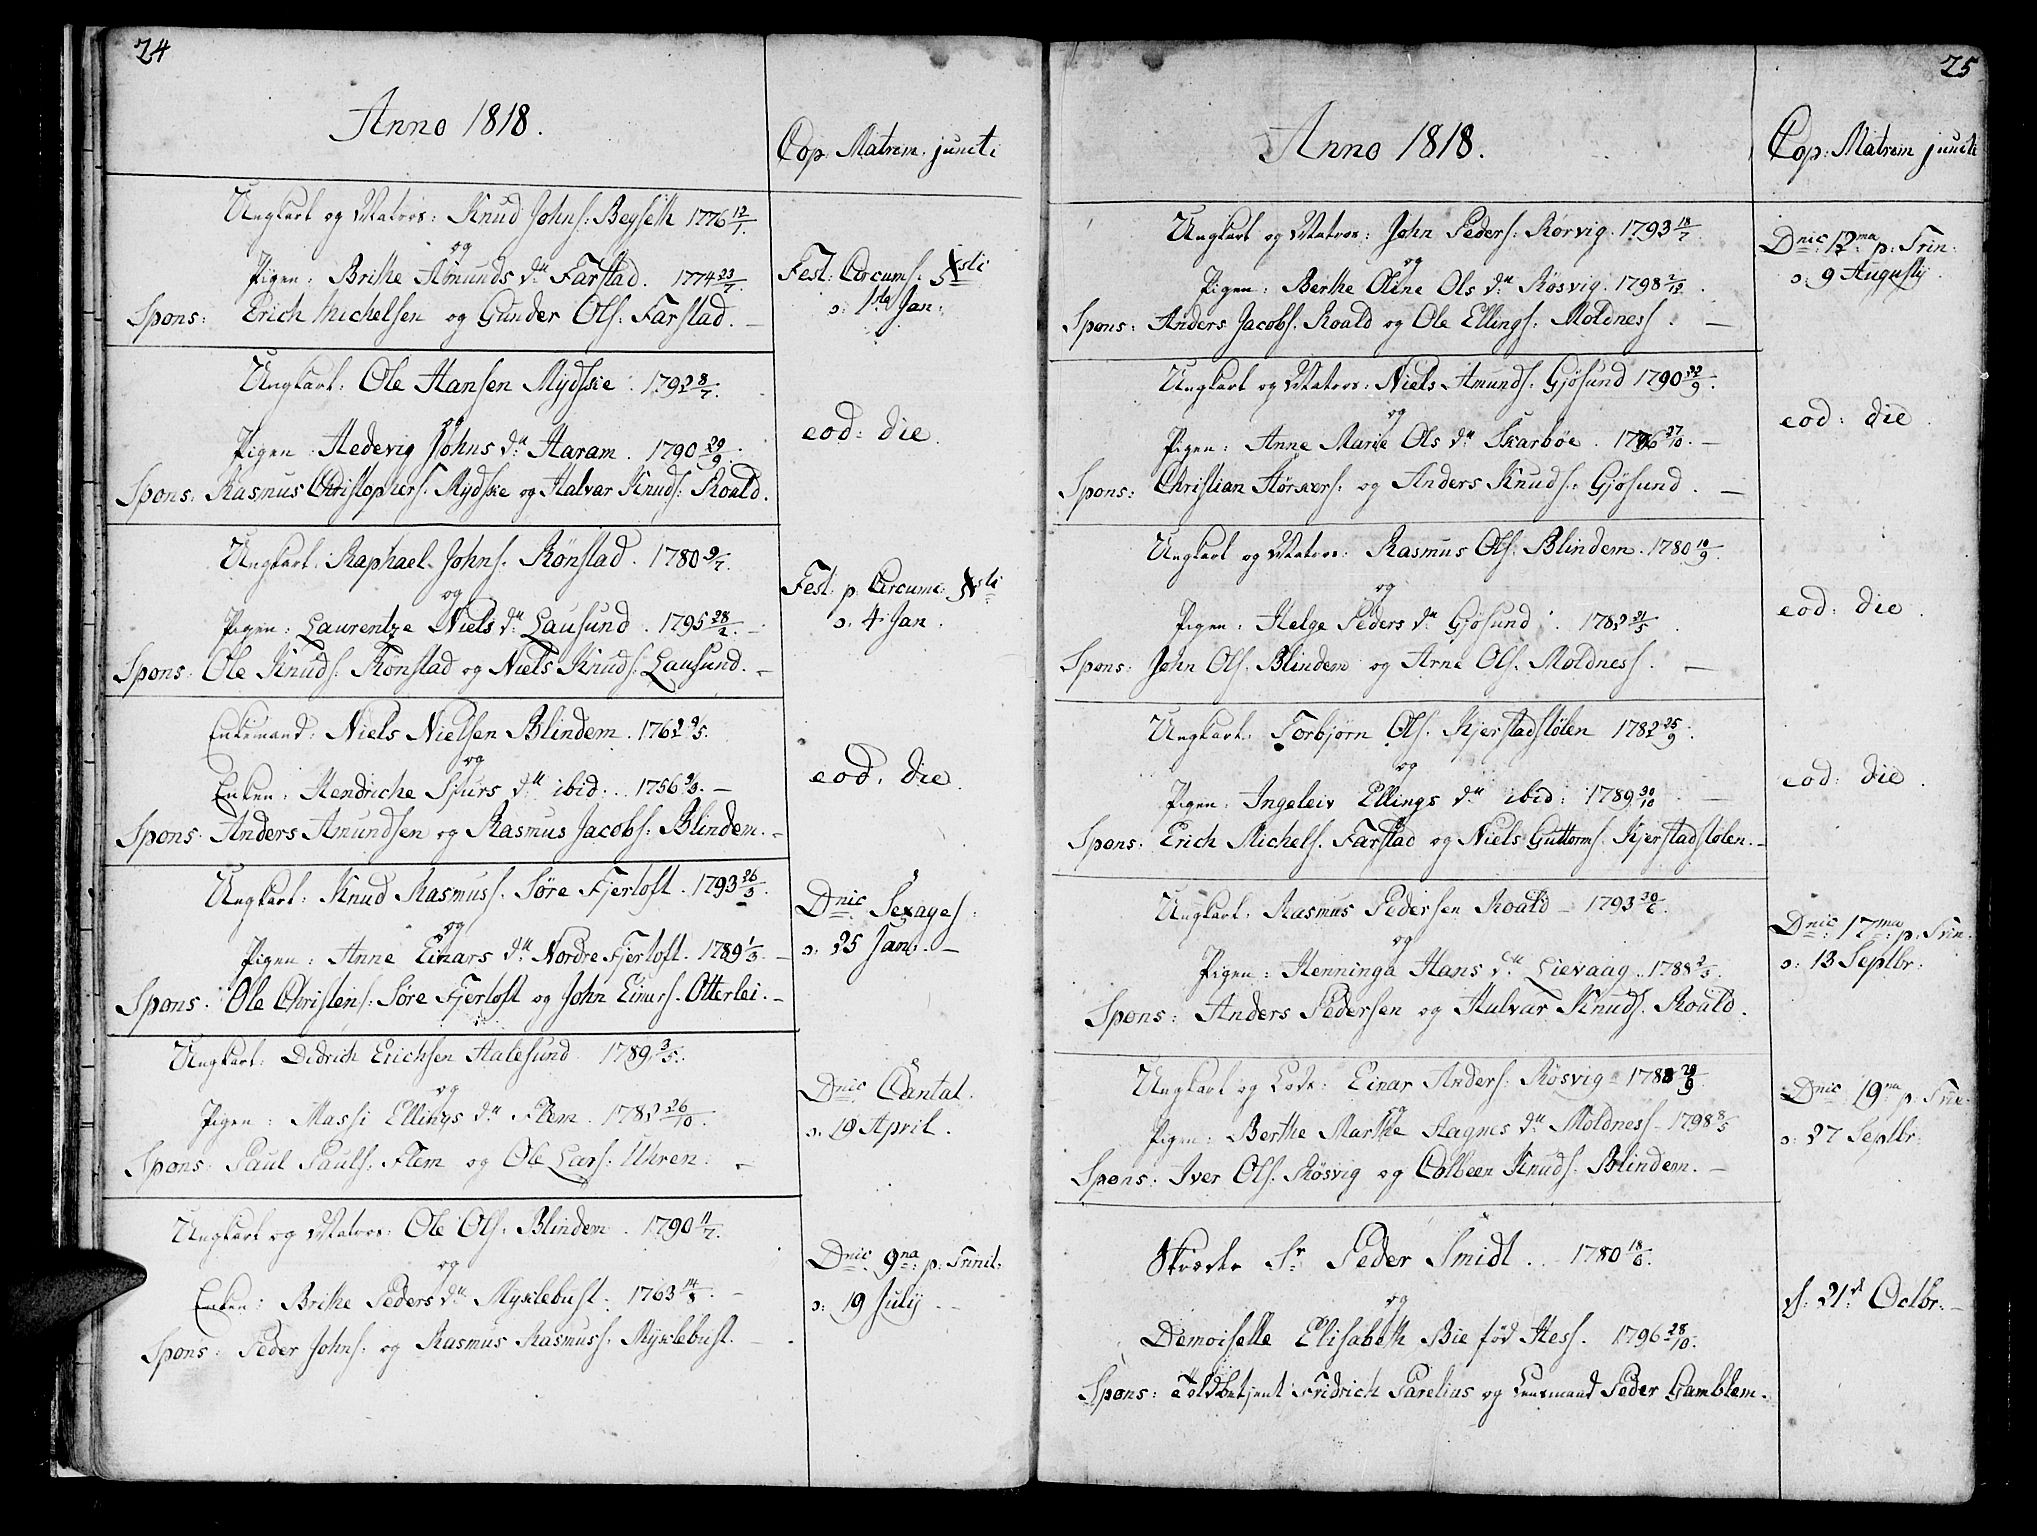 24
Anno 1818.
Cop: Matrim. juncti
Ungkarl og Matros: Knud Johns: Beyseth 1776 12/7.
og
Pigen: Brithe Amunds dtr Farstad. 1774 23/7.
Spons: Erich Michelsen og Gunder Ols: Farstad. —
Fest: Circums: Xsti
d: 1ste Jan:
Ungkarl: Ole Hansen Mydskie. 1792 8/7.
og
Pigen: Hedevig Johns dtr Haram. 1790 29/9.
Spons: Rasmus Christophers: Mydskie og Halvar Knuds: Roald.
eod: die.
Ungkarl: Raphael Johns: Rönstad. 1780 9/7.
og
Pigen: Laurentze Niels dtr Lausund. 1795 28/2. —
Spons: Ole Knuds: Rönstad og Niels Knuds: Lausund. —
Fest: p: Circumc: Xsti
d: 4 Jan.
Enkemand: Niels Nielsen Blindem. 1762 9/5.
og
Enken: Hendriche Siurs dtr ibid: 1756 9/3. —
Spons: Anders Amundsen og Rasmus Jacobs: Blindem. —
eod: die.
Ungkarl: Knud Rasmuss: Søre Fjertoft. 1793 26/3.
og
Pigen: Anne Einars dtr Nordre Fjertoft. 1789 1/3. —
Spons: Ole Christens: Søre Fjertoft og John Einars: Otterlei. —
Dnic: Sexages:
d: 25 Jan: —
Ungkarl: Didrich Erichsen Aalesund. 1789 3/5.
og
Pigen: Massi Ellings dtr Flem. 1782 26/10.
Spons: Paul Pauls: Flem og Ole Lars: Uhren. —
Dnic Cantat.
d: 19 April.
Ungkarl og Matros: Ole Ols: Blindem. 1790 11/7.
og
Enken: Brithe Peders dtr Myklebust. 1763 14/3. —
Spons: Peder Johns: og Rasmus Rasmuss: Myklebust. —
Dnic 9na p: Trinit:
d: 19 July. —
25
Anno 1818.
Cop: Matrim juncti
Ungkarl og Matros: John Peders: Rörvig. 1793 18/7.
og
Pigen: Berthe Oline Ols dtr Røsvig. 1798 2/12.
Spons: Anders Jacobs: Roald og Ole Ellings: Moldness. —
Dnic: 12ma p: Trin:
d: 9 Augusty.
Ungkarl og Matros: Niels Amunds: Gjøsund 1790 22/9.
og
Pigen: Anne Marie Ols dtr Skarbøe. 1796 27/10. —
Spons: Christian Störkers: og Anders Knuds: Gjøsund. —
eod: die.
Ungkarl og Matros: Rasmus Ols: Blindem. 1780 10/9.
og
Pigen: Helge Peders dtr Gjøsund. 1782 21/5.
Spons: John Ols: Blindem og Arne Ols: Moldness. —
eod: die.
Ungkarl: Torbjørn Ols: Kjerstadstølen 1782 25/9.
og
Pigen: Ingeleiv Ellings dtr ibid: 1789 30/10. —
Spons: Erich Michels: Farstad og Niels Guttorms: Kjerstadstølen. —
eod: die.
Ungkarl: Rasmus Pedersen Roald — 1793 30/6.
og
Pigen: Henninga Hans dtr Lievaag. 1788 2/3.
Spons: Anders Pedersen og Halvar Knuds: Roald.
Dnic: 17ma p: Trin:
d: 13 Septbr:
Ungkarl og Lods: Einar Anders: Røsvig — 1788 29/9.
og
Pigen: Berthe Marthe Aagnes dtr Moldness — 1798 8/5
Spons: Iver Ols: Røsvig og Colbeen Knuds: Blindem. —
Dnic 19na p: Trin:
d: 27 Septbr:
Sr Peder Smidt. 1780 18/6.
og
Demoiselle Elisabeth Bie fød Hess. 1796 28/10.
Spons: Toldbetjent Fridrich Parelius og Lensmand Peder Gamblem.
d: 21d Octbr: —